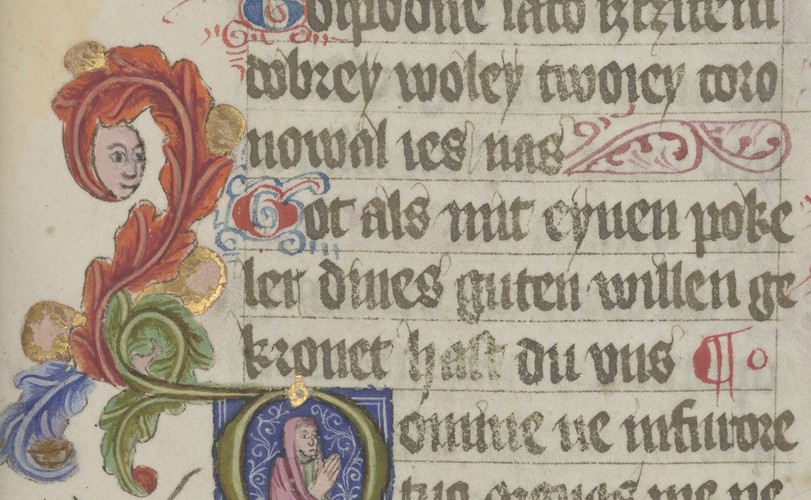 dobrey woley twoiey coro
nowal ies nas
Got als mit eynen poke
ler dines guten willen ge
kronet hast du vns
Domine ne infurore